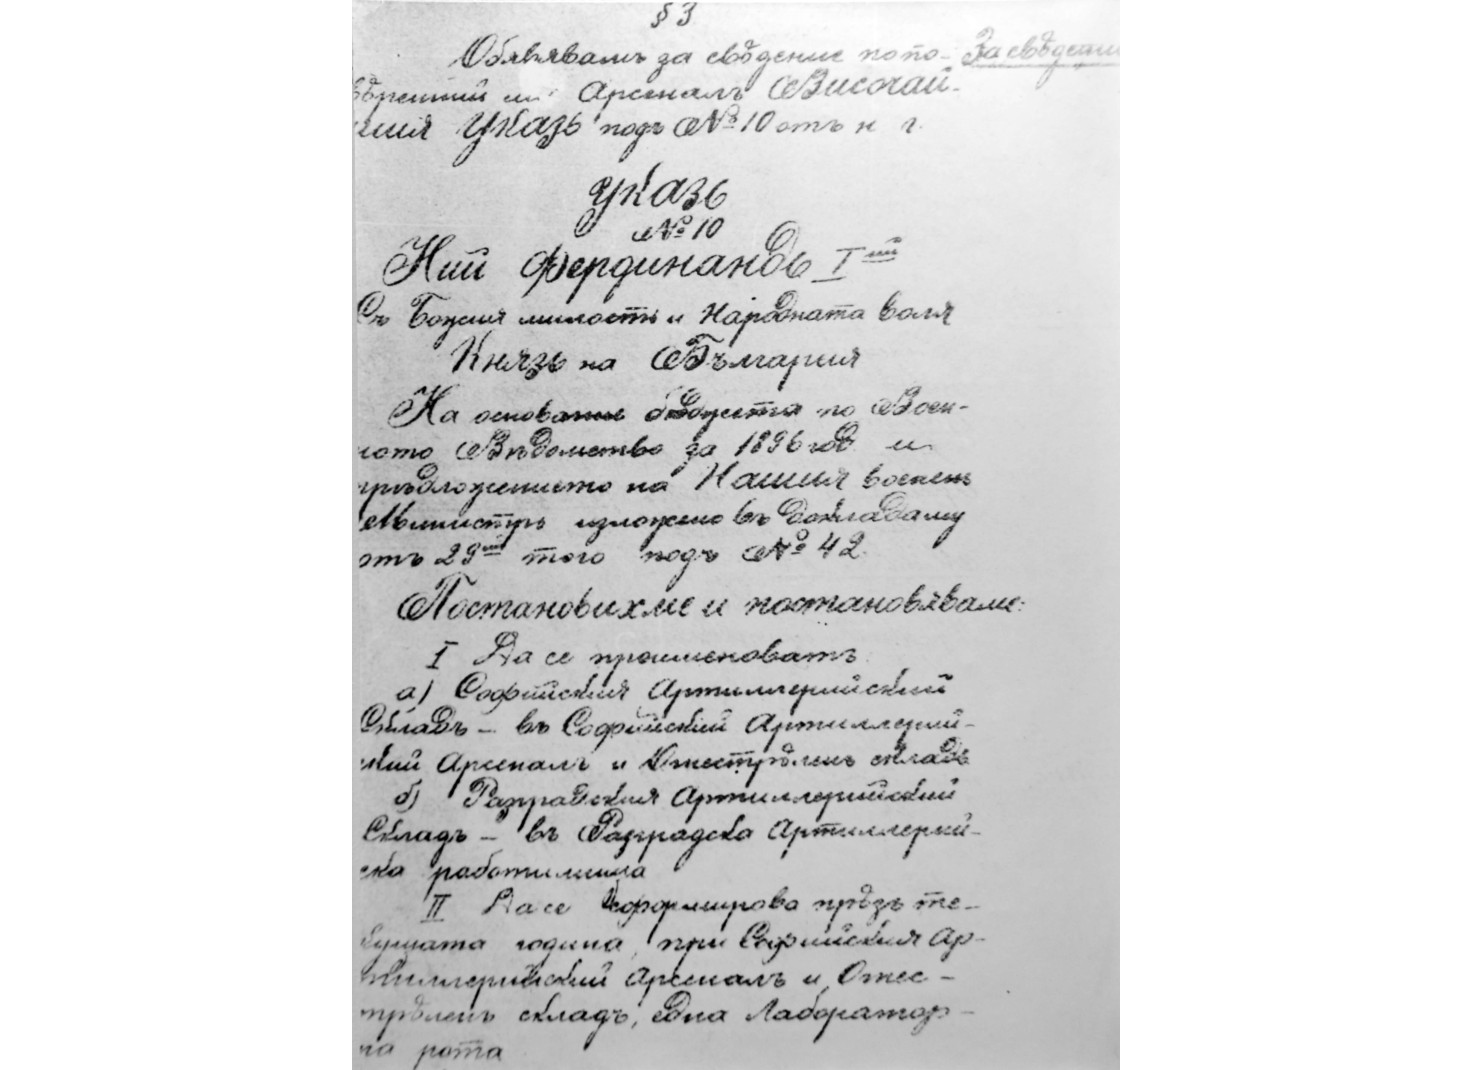 § 3
Обявявамъ за сведение по по- За сведение
вѣренний ми Арсеналъ Височай-
шия Указъ подъ № 10 отъ н г.
Указъ
№ 10
Ний Фердинандъ I ий
Съ Божия милость и Народната воля
Князъ на България
На основание бюджета по Воен-
ното Вѣдомство за 1896 год и
предложението на Нашия военен
Министръ изложено въ доклада му
отъ 29 ий того подъ № 42.
Постановихме и постановяваме:
I Да се преименоватъ
а) Софийския Артиллерийский
Складъ – въ Софийский Артиллерий-
ский Арсеналъ и Огнестрѣленъ складъ
б) Разградския Артиллерийский
Складъ – въ Разградска Артиллерий-
ска работилница
II Да се сформирова прѣзъ те-
кущата година, при Софийския Ар-
тиллерийский Арсеналъ и Огнес-
трѣленъ складъ, една Лаборатор-
на рота